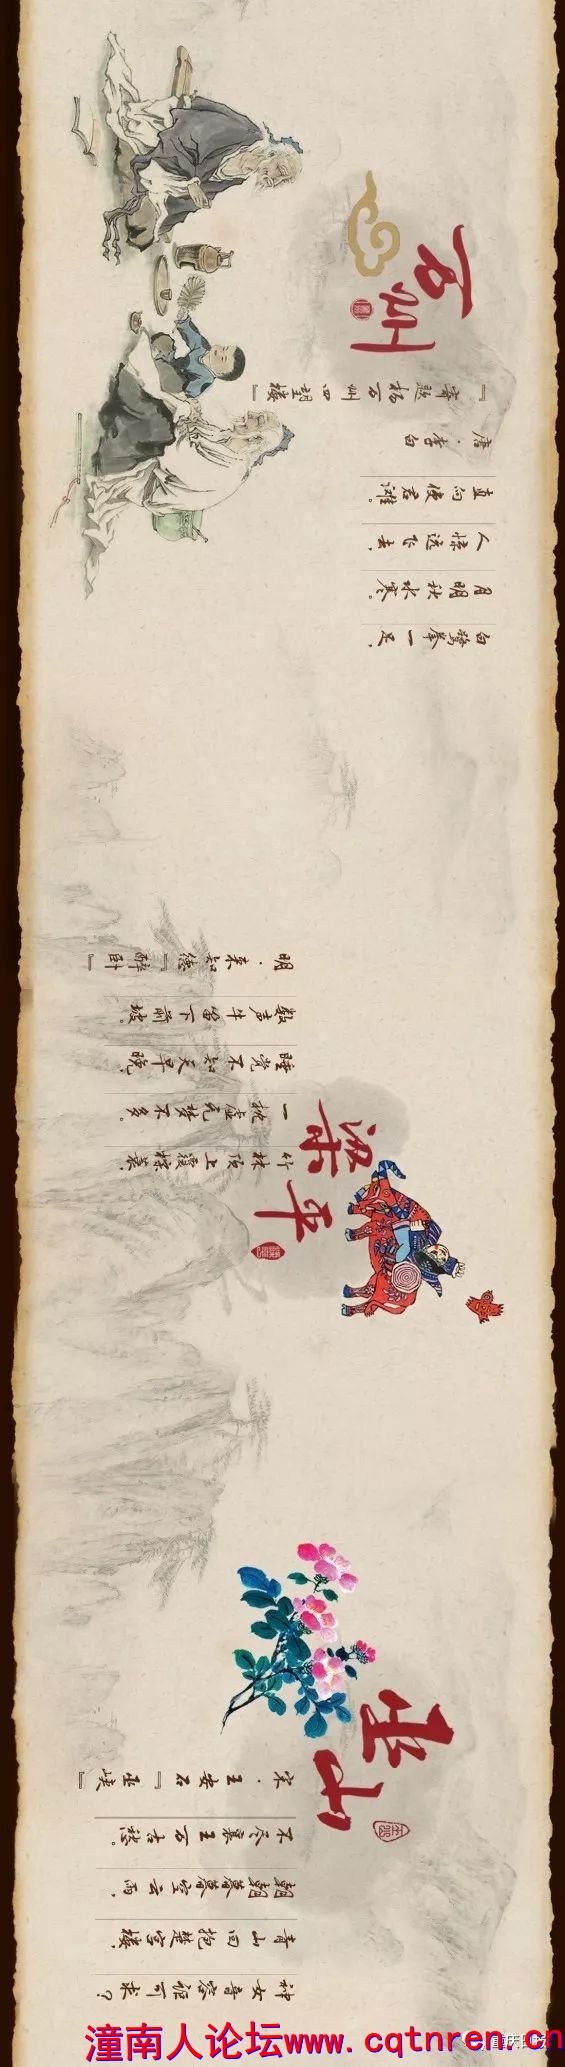 万州
白鹭拳一足，
月明秋水寒。
人惊远飞去，
直向使君滩。
唐·李白
『寄题杨万州四望楼』
梁平
竹林顶上覆棕蓑，
一枕虚无梦不多。
睡觉不知天早晚，
数声牛笛下前坡。
明·来知德『醉卧』
巫山
神女音容讵可求？
青山回抱楚宫楼，
朝朝暮暮空云雨，
不尽襄王万古愁。
宋·王安石『巫峡』
潼南人论坛www.cqtnren.cn